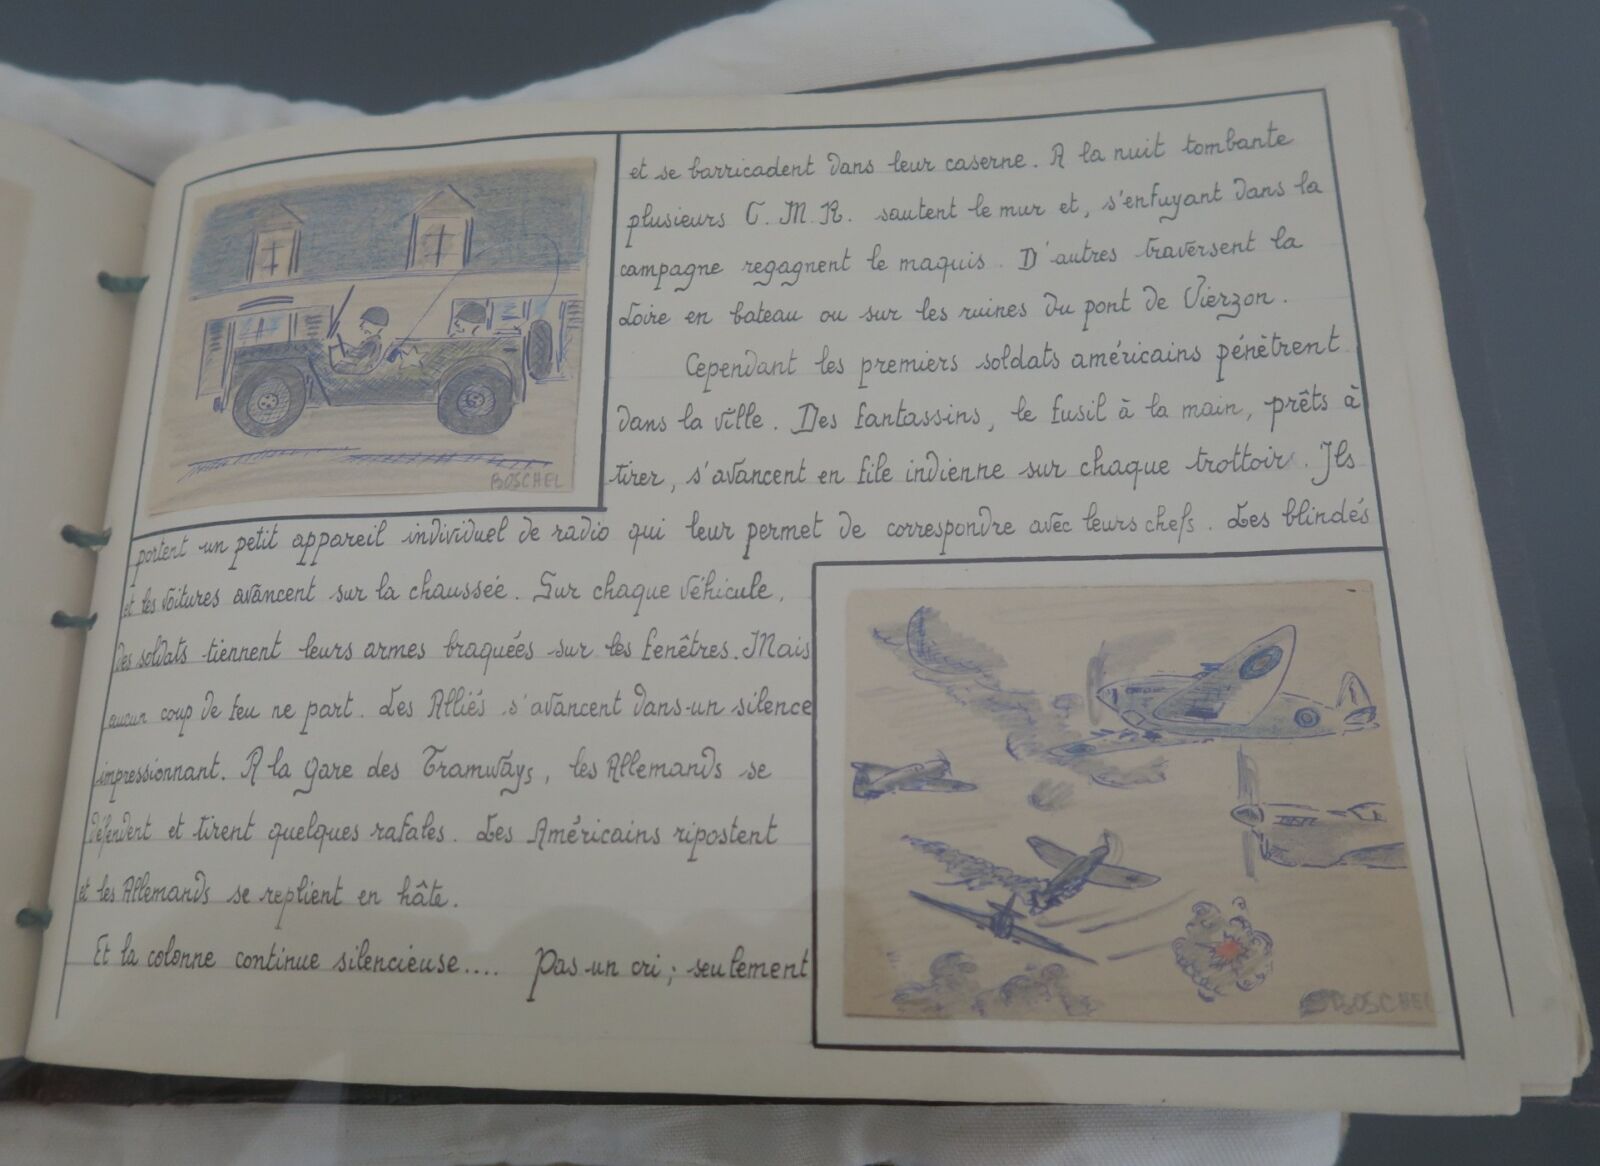 et se barricadent dans leur caserne. A la nuit tombante
plusieurs C. M. R. sautent le mur et, s'enfuyant dans la
campagne regagnent le maquis. D'autres traversent la
Loire en bateau ou sur les ruines du pont de Vierzon.
Cependant les premiers soldats américains pénètrent
dans la ville. Des fantassins, le fusil à la main, prêts à
tirer, s'avancent en file indienne sur chaque trottoir. Ils
portent un petit appareil individuel de radio qui leur permet de correspondre avec leurs chefs. Les blindés
et les voitures avancent sur la chaussée. Sur chaque véhicule,
des soldats tiennent leurs armes braquées sur les fenêtres. Mais
aucun coup de feu ne part. Les Alliés s'avancent dans un silence
impressionnant. A la gare des Tramways, les Allemands se
défendent et tirent quelques rafales. Les Américains ripostent
et les Allemands se replient en hâte.
Et la colonne continue silencieuse.... Pas un cri ; seulement
BOSCHEL
BOSCHEL